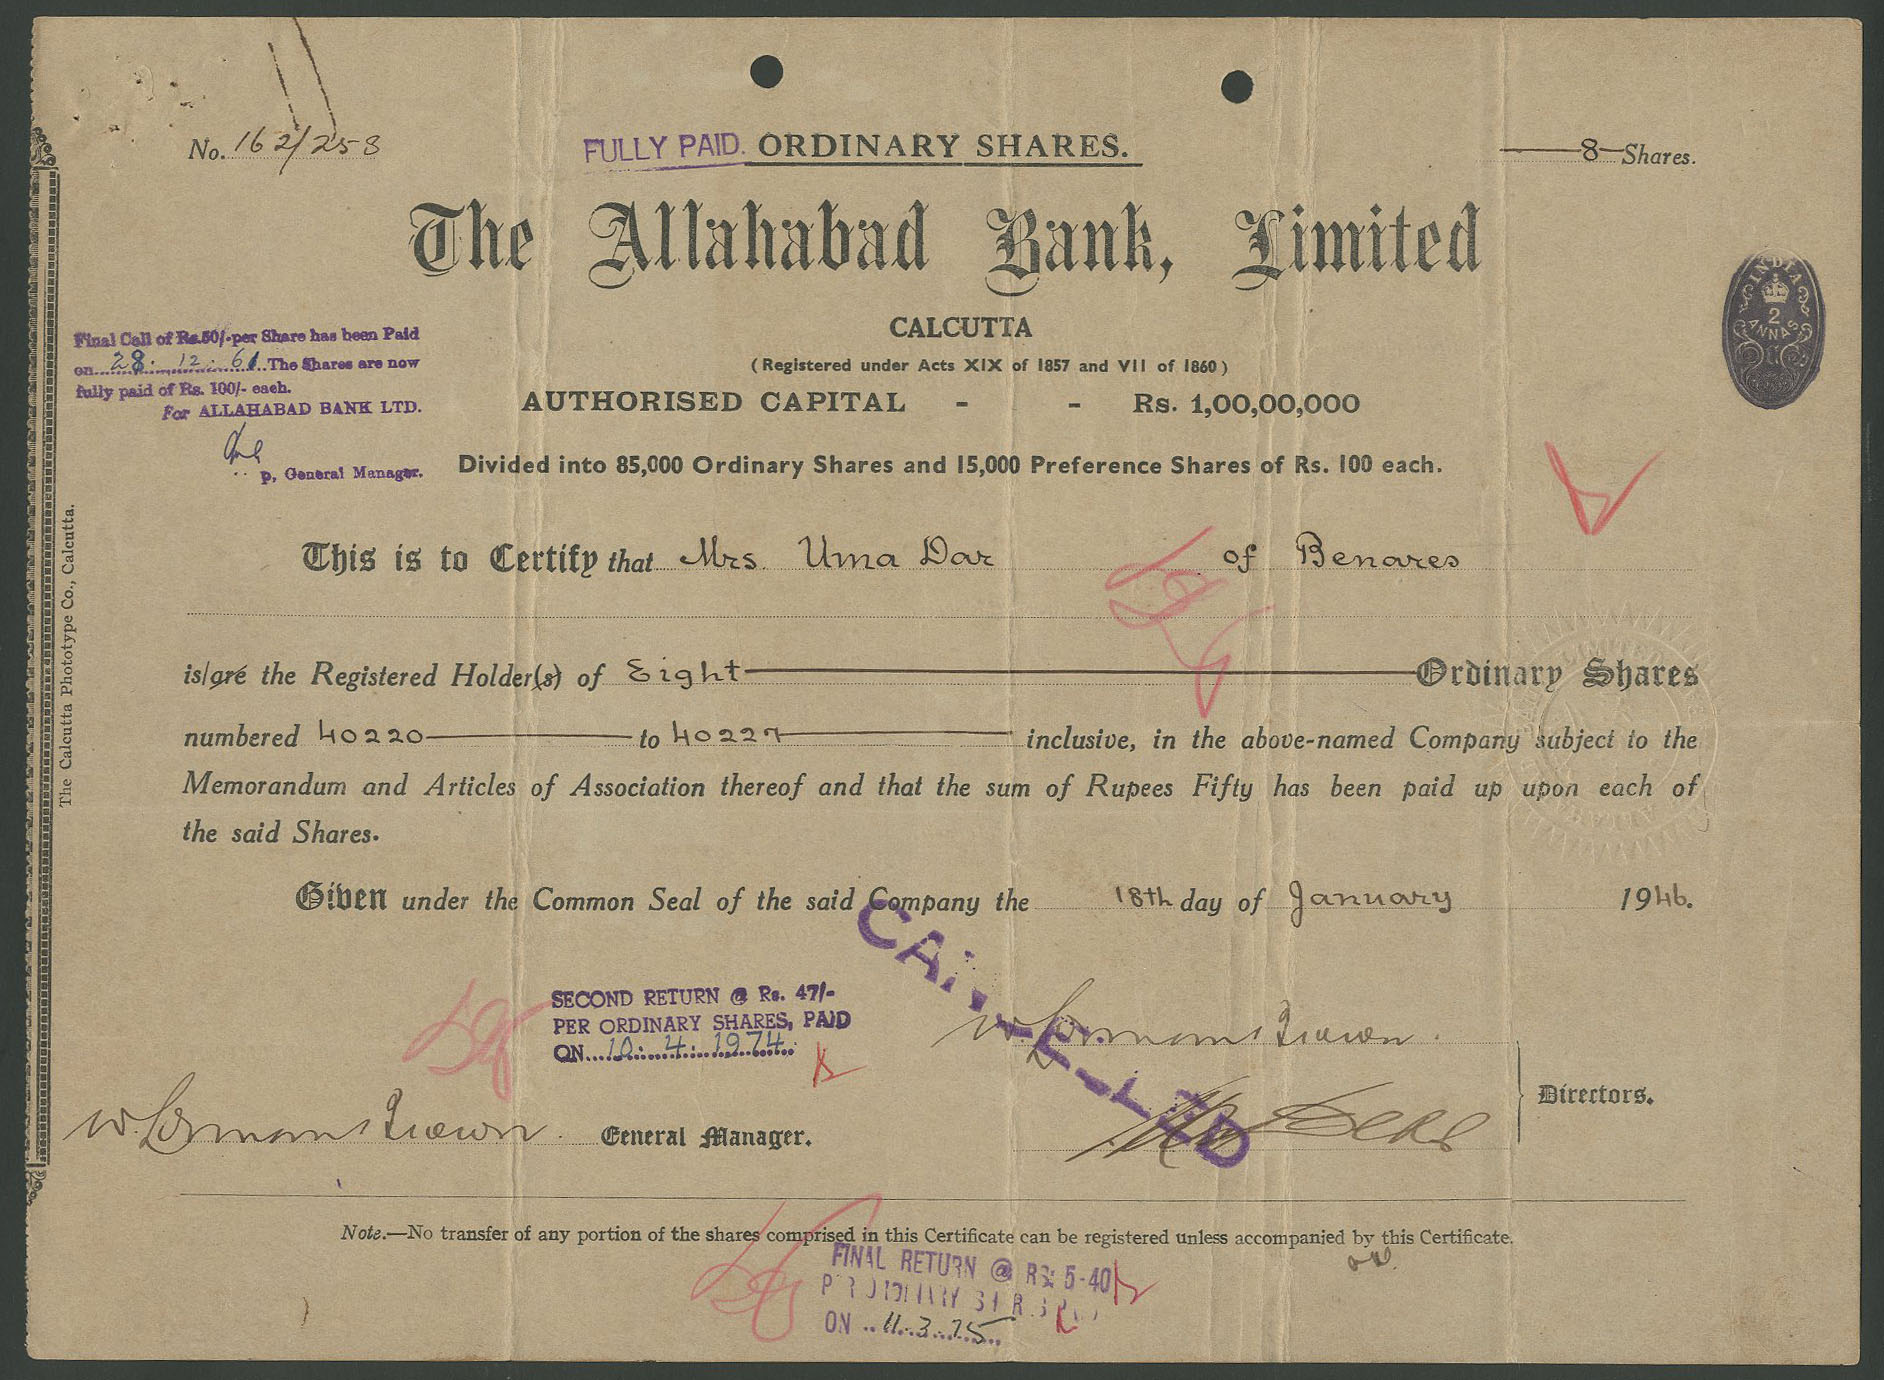 No. 162/258
FULLY PAID. ORDINARY SHARES.
8 Shares.
The Allahabad Bank, Limited
INDIA
2
ANNAS
CALCUTTA
(Registered under Acts XIX of 1857 and VII of 1860)
Final Call of Rs.50/-per Share has been Paid
on 28. 12. 61. The Shares are now
fully paid of Rs. 100/- each.
For ALLAHABAD BANK LTD.
p. General Manager.
AUTHORISED CAPITAL - - Rs. 1,00,00,000
Divided into 85,000 Ordinary Shares and 15,000 Preference Shares of Rs. 100 each.
This is to Certify that Mrs. Uma Dar of Benares
is/are the Registered Holder(s) of Eight Ordinary Shares
numbered 40220 to 40227 inclusive, in the above-named Company subject to the
Memorandum and Articles of Association thereof and that the sum of Rupees Fifty has been paid up upon each of
the said Shares.
Given under the Common Seal of the said Company the 18th day of January 1946.
CANCELLED
SECOND RETURN @ Rs. 47/-
PER ORDINARY SHARES, PAID
ON 10. 4. 1974.
Directors.
General Manager.
Note.—No transfer of any portion of the shares comprised in this Certificate can be registered unless accompanied by this Certificate.
FINAL RETURN @ RS: 5-40
ON 11.3.75
The Calcutta Phototype Co., Calcutta.